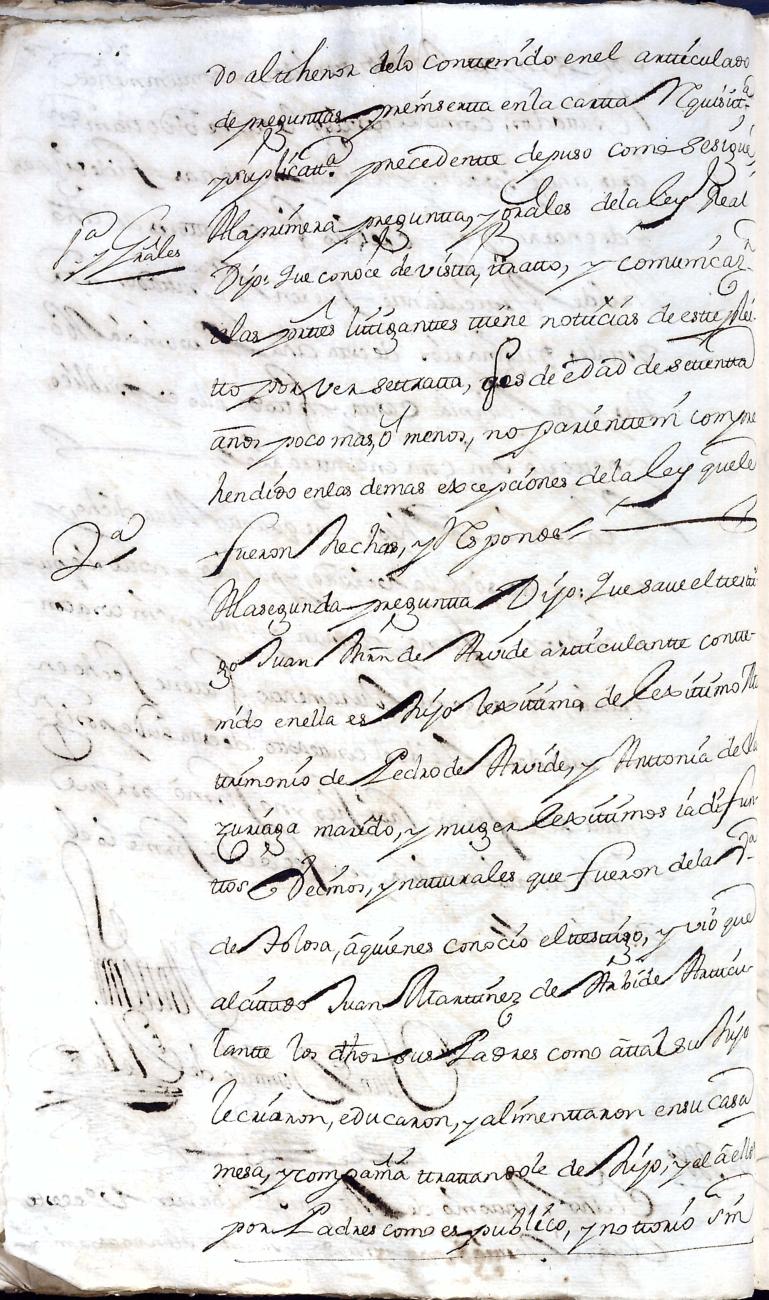 do al thenor delo contenido enel articulado
de preguntas preinserta en la carta Requisitª
y suplicattª precedente depuso como sesigue
1ª y Grāles
Ala primera pregunta, y grāles dela ley Real
Dijo: Que conoce de vista, tratto, y comunicaz.n
alas partes litigantes tiene noticias de este plei-
tto por ver se tratta, qe es de edad de settentta
años poco mas, ô menos, no pariente ni compre
hendido enlas demas excepciones dela ley quele
fueron hechas, y Responde
2ª
Ala segunda pregunta Dijo: Que save el testi
go Juan Mrn de Arvide articulante conte-
nido enella es Hijo lexitimo de lexitimo Ma
trimonio de Pedro de Arvide, y Anttonia de
zuriaga marido, y muger lexitimos ia difun
ttos Vecinos, y natturales que fueron dela Vª
de Tolosa, â quienes conocio el testigo, y vio que
al cittado Juan Martinez de Arbide Articu-
lantte los dhos sus Padres como â ttal su Hijo
le criaron, educaron, y alimenttaron en su casa
mesa, y compañia tratandole de Hijo, y el â ellos
por Padres como es publico, y nottorio sin